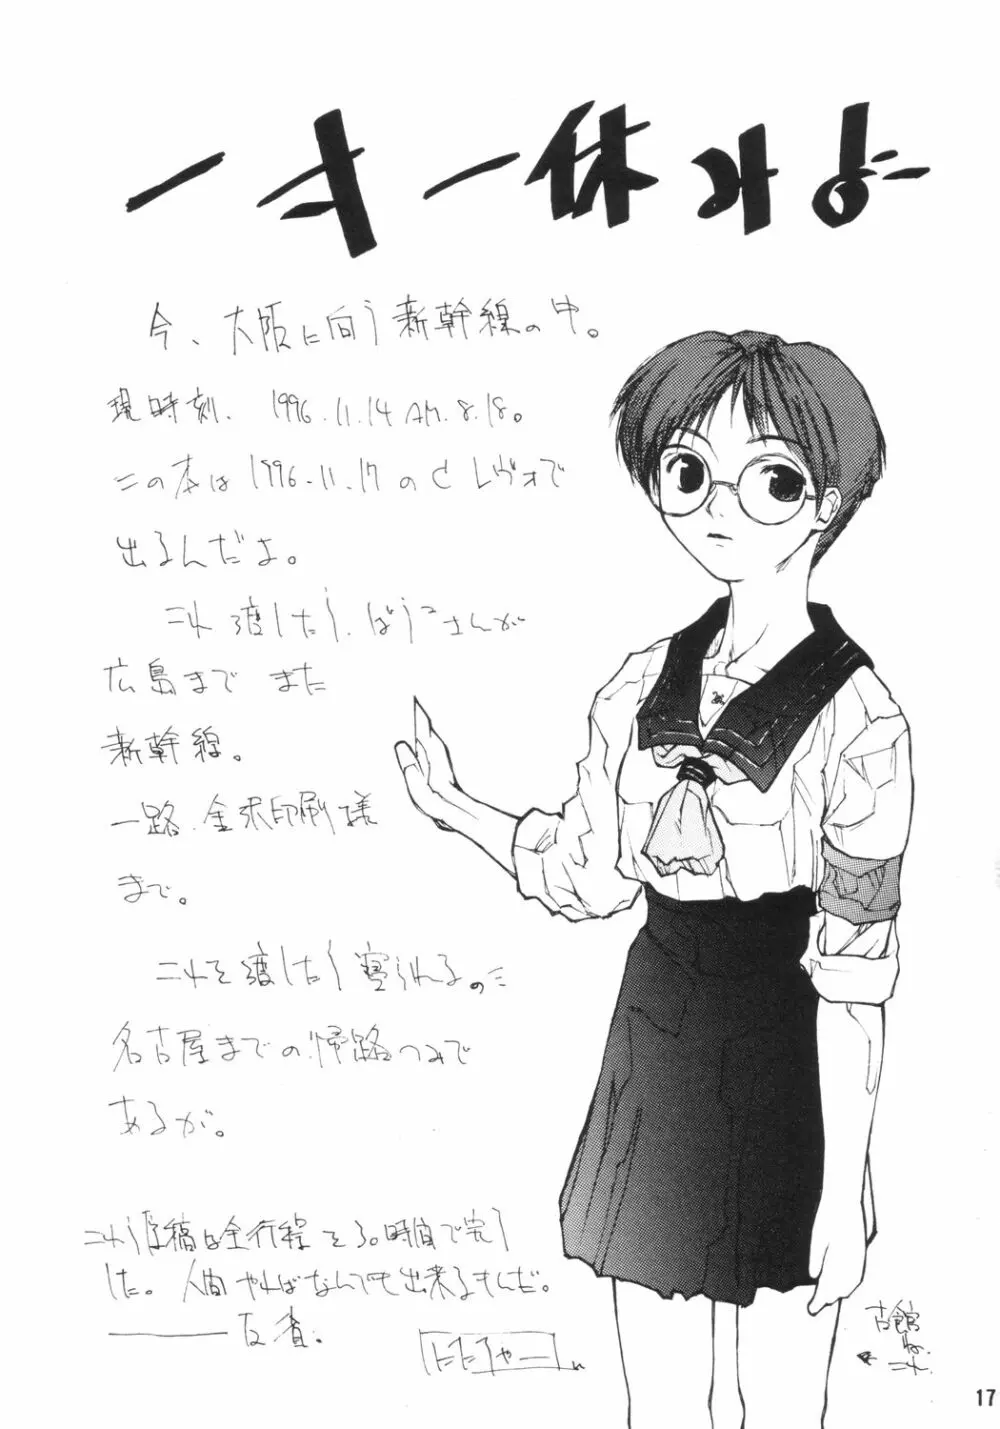 今、大阪に向う新幹線の中。
現時刻、1996.11.14 AM.8.18。
この本は1996.11.17のCレヴォで
出るんだよ。
これ渡したら、ぱうさんが
広島まで また
新幹線。
一路、金沢印刷様
まで。
これを渡したら寝られるのに
名古屋までの帰路つみで
あるが。
これら原稿は全行程を30時間で完了
した。人間やればなんでも出来るもんだ。
――反省。
にたちゃー
古館
ね。
これ
17